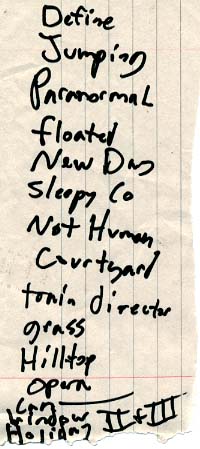 Define
Jumping
Paranormal
floated
New Day
Sleepy Co
Not Human
Courtyard
tonin director
grass
Hilltop
Opera
Window II + III
Holiday